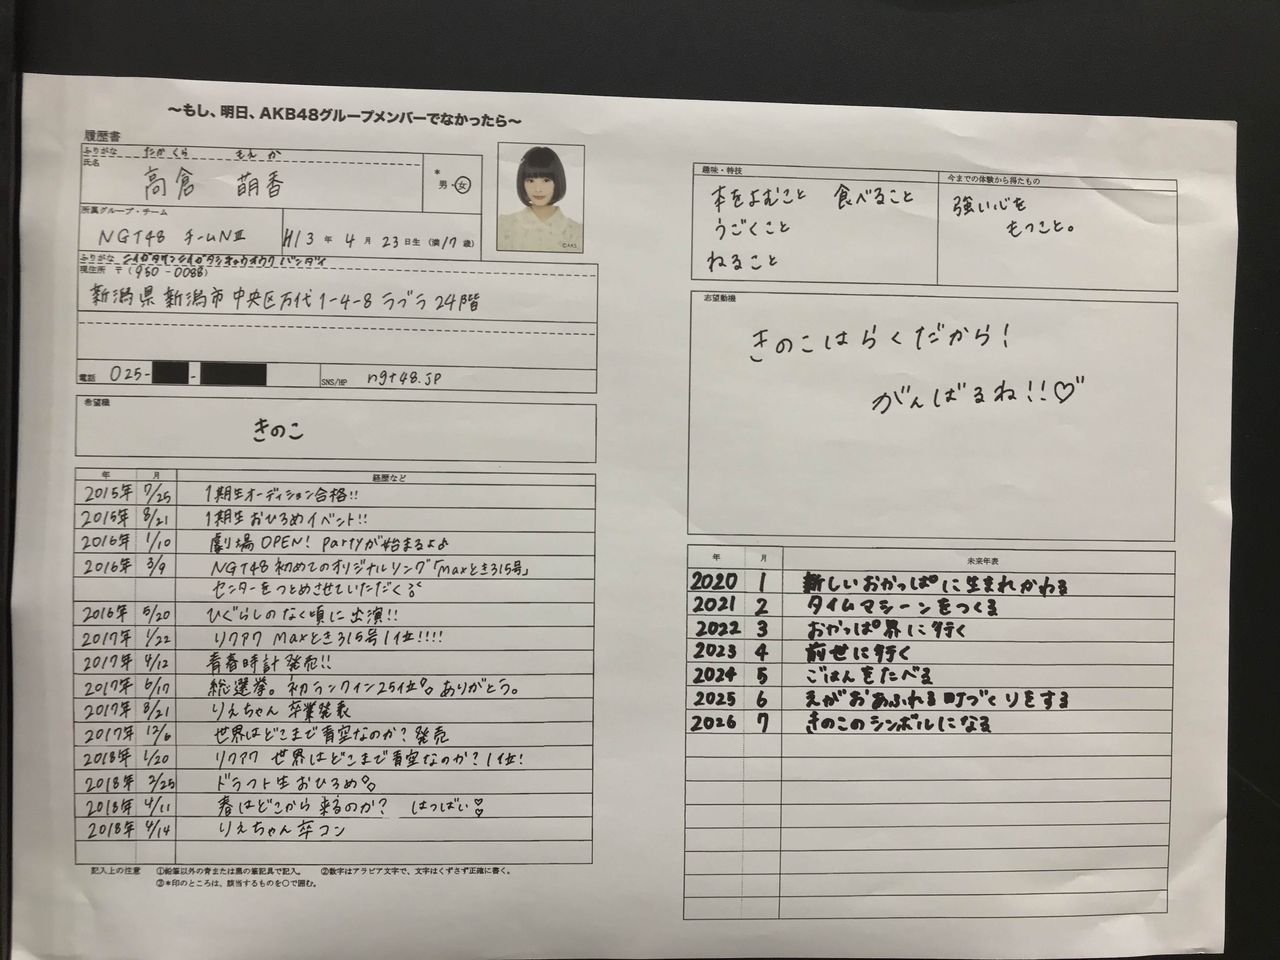 ～もし、明日、AKB48グループメンバーでなかったら～
履歴書
ふりがな たかくら もえか
氏名 高倉 萌香
*
男・女
©AKS
所属グループ・チーム
NGT48 チームNⅢ
H13年 4月 23日生 (満17歳)
ふりがな ニイガタケンニイガタシチュウオウク バンダイ
現住所 〒(950-0088)
新潟県新潟市中央区万代1-4-8 ラブラ24階
電話 025- -
SNS/HP ngt48.jp
希望職
きのこ
年 月 経歴など
2015年 7/25 1期生オーディション合格!!
2015年 8/21 1期生おひろめイベント!!
2016年 1/10 劇場OPEN! Partyが始まるよ♪
2016年 3/9 NGT48初めてのオリジナルソング「Maxとき315号」
センターをつとめさせていただく
2016年 5/20 ひぐらしのなく頃に出演!!
2017年 1/22 リクアワ Maxとき315号1位!!!!
2017年 4/12 青春時計発売!!
2017年 6/17 総選挙。初ランクイン25位。ありがとう。
2017年 8/21 りえちゃん卒業発表
2017年 12/6 世界はどこまで青空なのか?発売
2018年 1/20 リクアワ 世界はどこまで青空なのか?1位!
2018年 2/25 ドラフト生おひろめ
2018年 4/11 春はどこから来るのか? はつばい♡
2018年 4/14 りえちゃん卒コン
記入上の注意 ①鉛筆以外の青または黒の筆記具で記入。 ②数字はアラビア文字で、文字はくずさず正確に書く。
③*印のところは、該当するものを○で囲む。
趣味・特技
本をよむこと 食べること
うごくこと
ねること
今までの体験から得たもの
強い心を
もつこと。
志望動機
きのこはらくだから!
がんばるね!!♡
年 月 未来年表
2020 1 新しいおかっぱに生まれかわる
2021 2 タイムマシーンをつくる
2022 3 おかっぱ界に行く
2023 4 前世に行く
2024 5 ごはんをたべる
2025 6 えがおあふれる町づくりをする
2026 7 きのこのシンボルになる